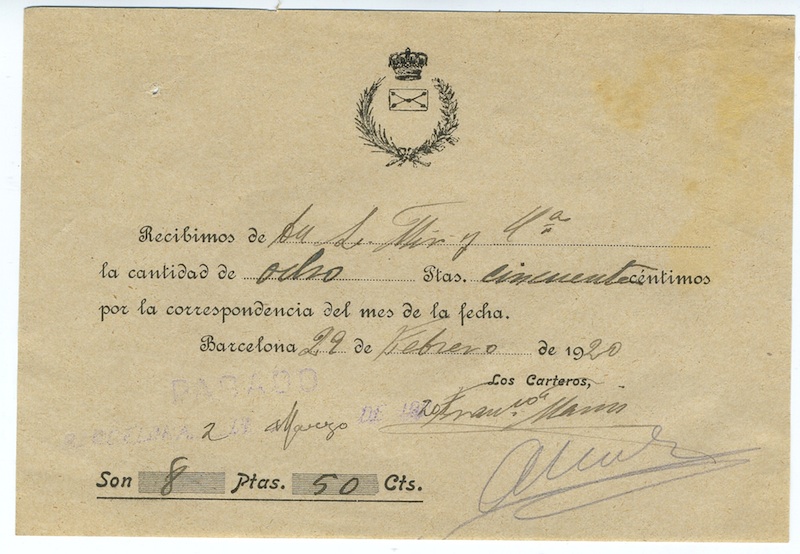 Recibimos de Mir y Cª
la cantidad de ocho Ptas. cincuenta céntimos
por la correspondencia del mes de la fecha.
Barcelona 29 de Febrero de 1920
Los Carteros,
PAGADO
BARCELONA 2 DE Marzo DE 1920
Son 8 Ptas. 50 Cts.